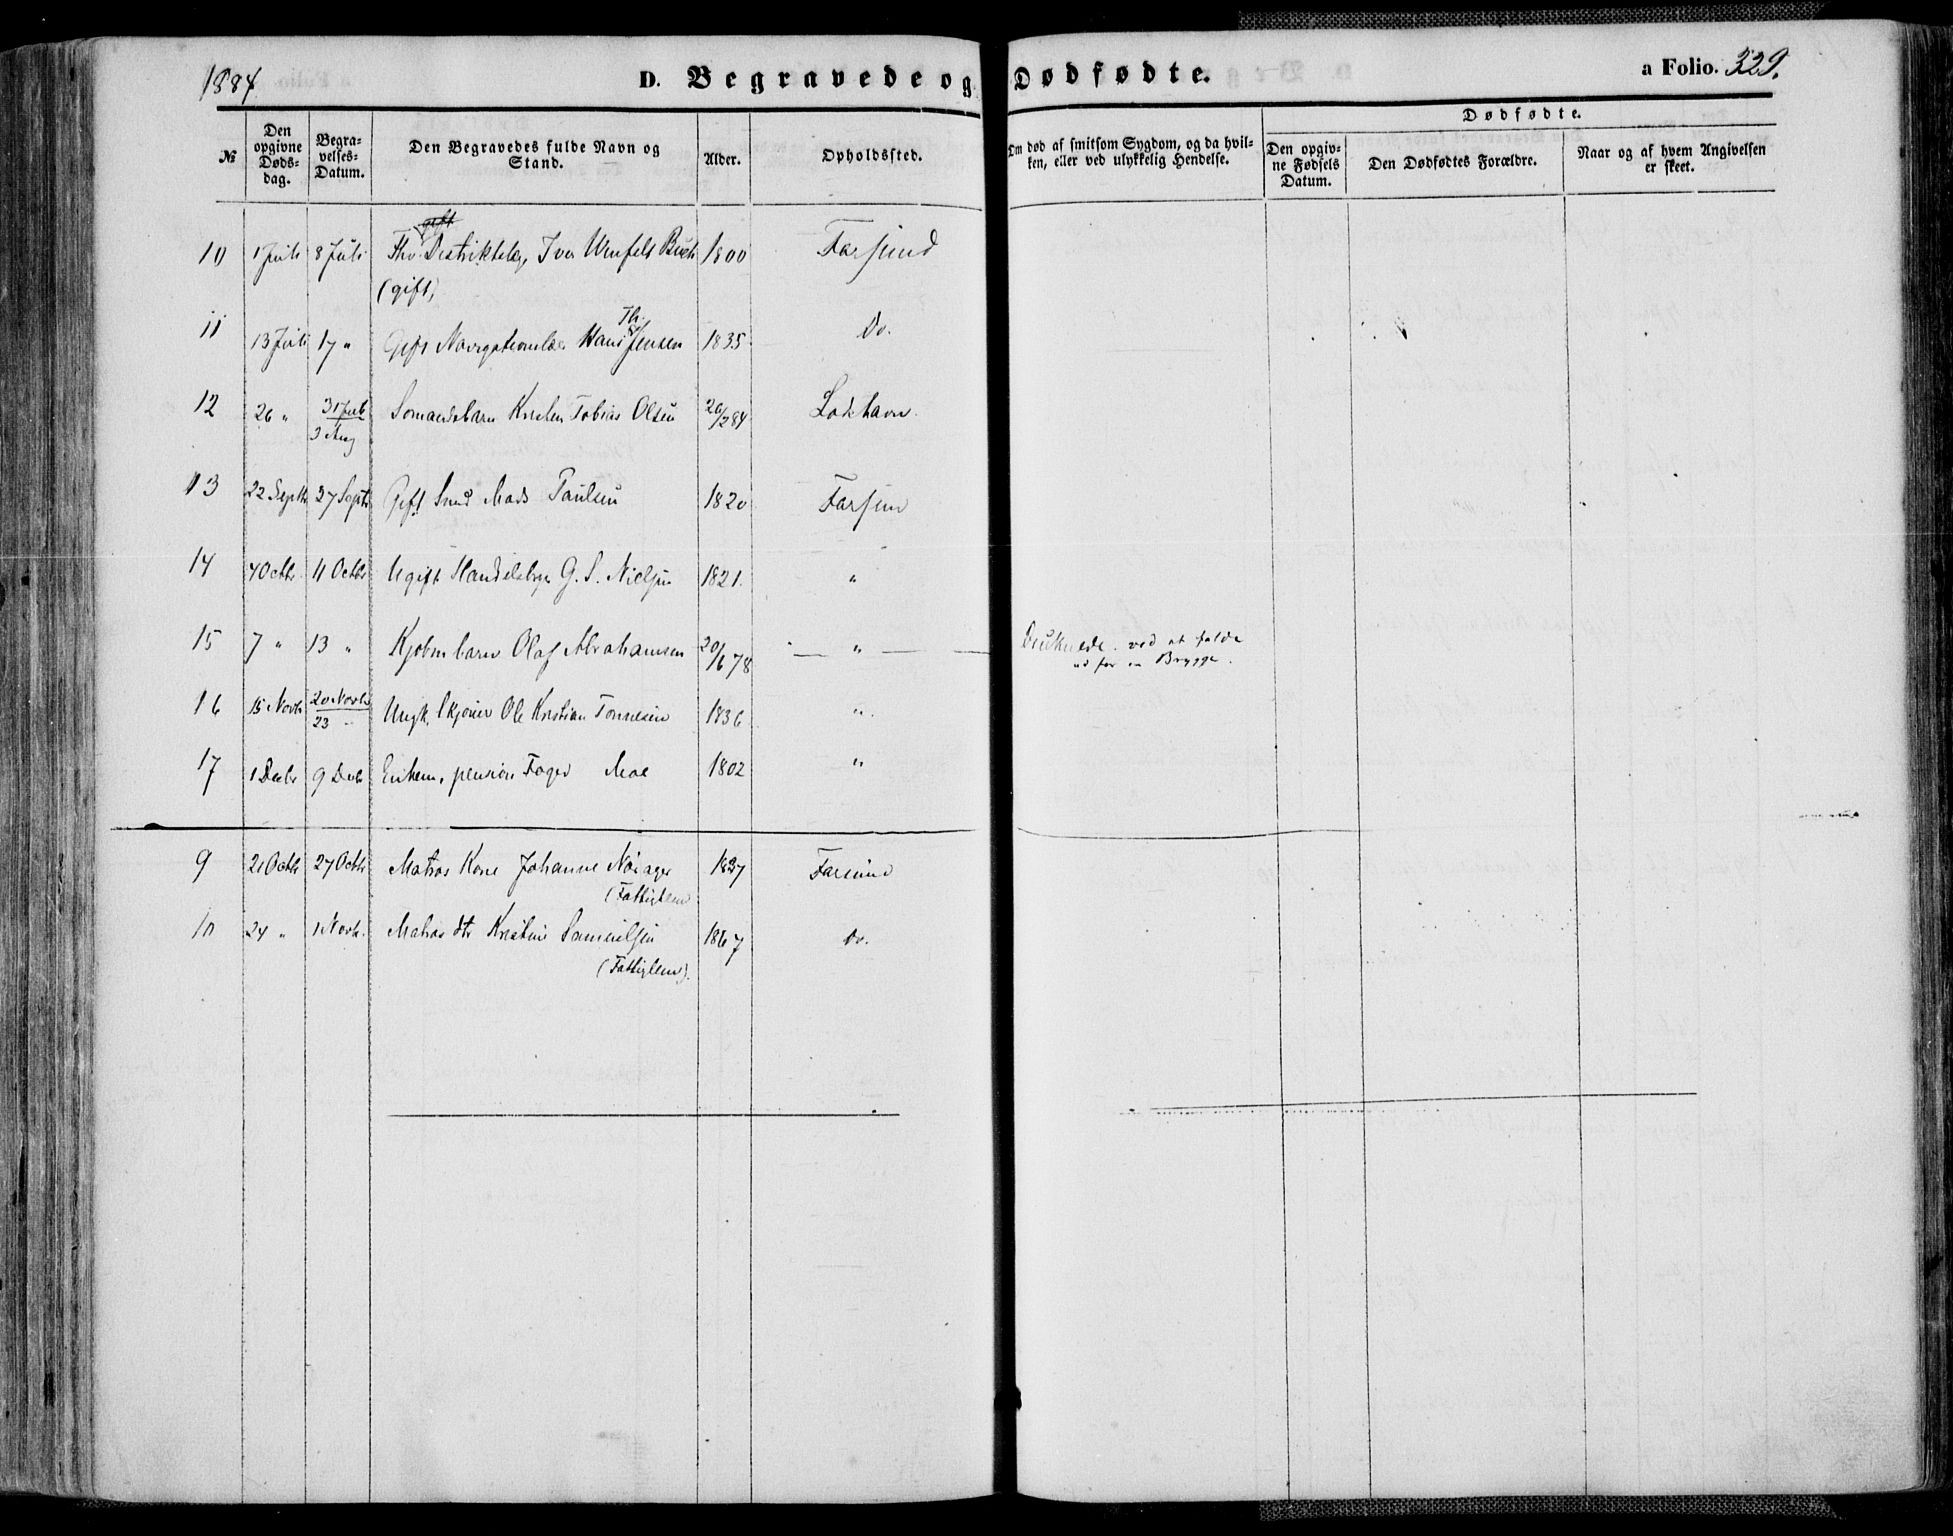 1884
D. Begravede og Dødfødte.
a Folio. 329.
№
Den opgivne Døds-dag.
Begra-velses-Datum.
Den Begravedes fulde Navn og Stand.
Alder.
Opholdssted.
Om død af smitsom Sygdom, og da hvil-ken, eller ved ulykkelig Hendelse.
Dødfødte.
Den opgiv-ne Fødsels Datum.
Den Dødfødtes Forældre.
Naar og af hvem Angivelsen er skeet.
gift
10 1 Juli 8 Juli Fhv. Distriktslæge Iver Buch 1800 Farsund
(gift)
Th.
11 13 Juli 17 " Gift Navigationslær Hans Jensen 1835 Do.
12 26 " 31 Juli Tobias Olsen 20/2 84 Lokhavn.
3 Aug
13 22 Septb 27 Septb Gift Smed Mads Paulsen 1820 Farsun
14 4 Octb. 11 Octbr Ugift Handelsbge G. S. Nielsen 1821. "
15 7 " 13 " Kjøbmbarn Olaf Abrahamsen 20/6 78 — " — Druknede ved at falde
ud for en Brygge.
16 15 Novb 20 Novb Ungk. Ole Kristian Tønnesen 1836 "
23 "
17 1 Decbr 9 Decbr Enkem, pension Foged Moe 1802 "
9 21 Octb 27 Octb Matros Kone Johanne 1827 Farsund
(Fattiglem
10 24 " 1 Novb. Matros dtr Kristine Samuelsen 1867 Do.
(Fattiglem).